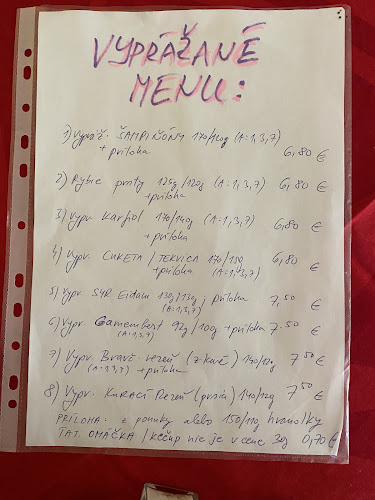 VYPRÁŽANÉ
MENU:
1) Vypráž. ŠAMPIŇÓNY 170/120g (A:1,3,7)
+ príloha 6,80 €
2) Rybie prsty 125g/120g (A:1,3,7) 6,80 €
+ príloha
3) Vypr. Karfiol 170/140g (A:1,3,7)
+ príloha 6,80 €
4) Vypr. CUKETA / TEKVICA 170/150 6,80 €
+ príloha (A:1,3,7)
5) Vypr SYR Eidam 130g/130g, príloha 7,50 €
(A:1,3,7)
6) Vypr. Camembert 92g/100g + príloha 7.50 €
(A:1,3,7)
7) Vypr. Bravč. rezeň (z karé) 140/12g 7,50 €
(A:1,3,7) + príloha
8) Vypr. KURACÍ Rezeň (prsia) 140/12g 7,50 €
PRÍLOHA: z ponuky alebo 150/110g hranolky
TAT. OMÁČKA / Kečup nie je v cene 30g 0,70 €